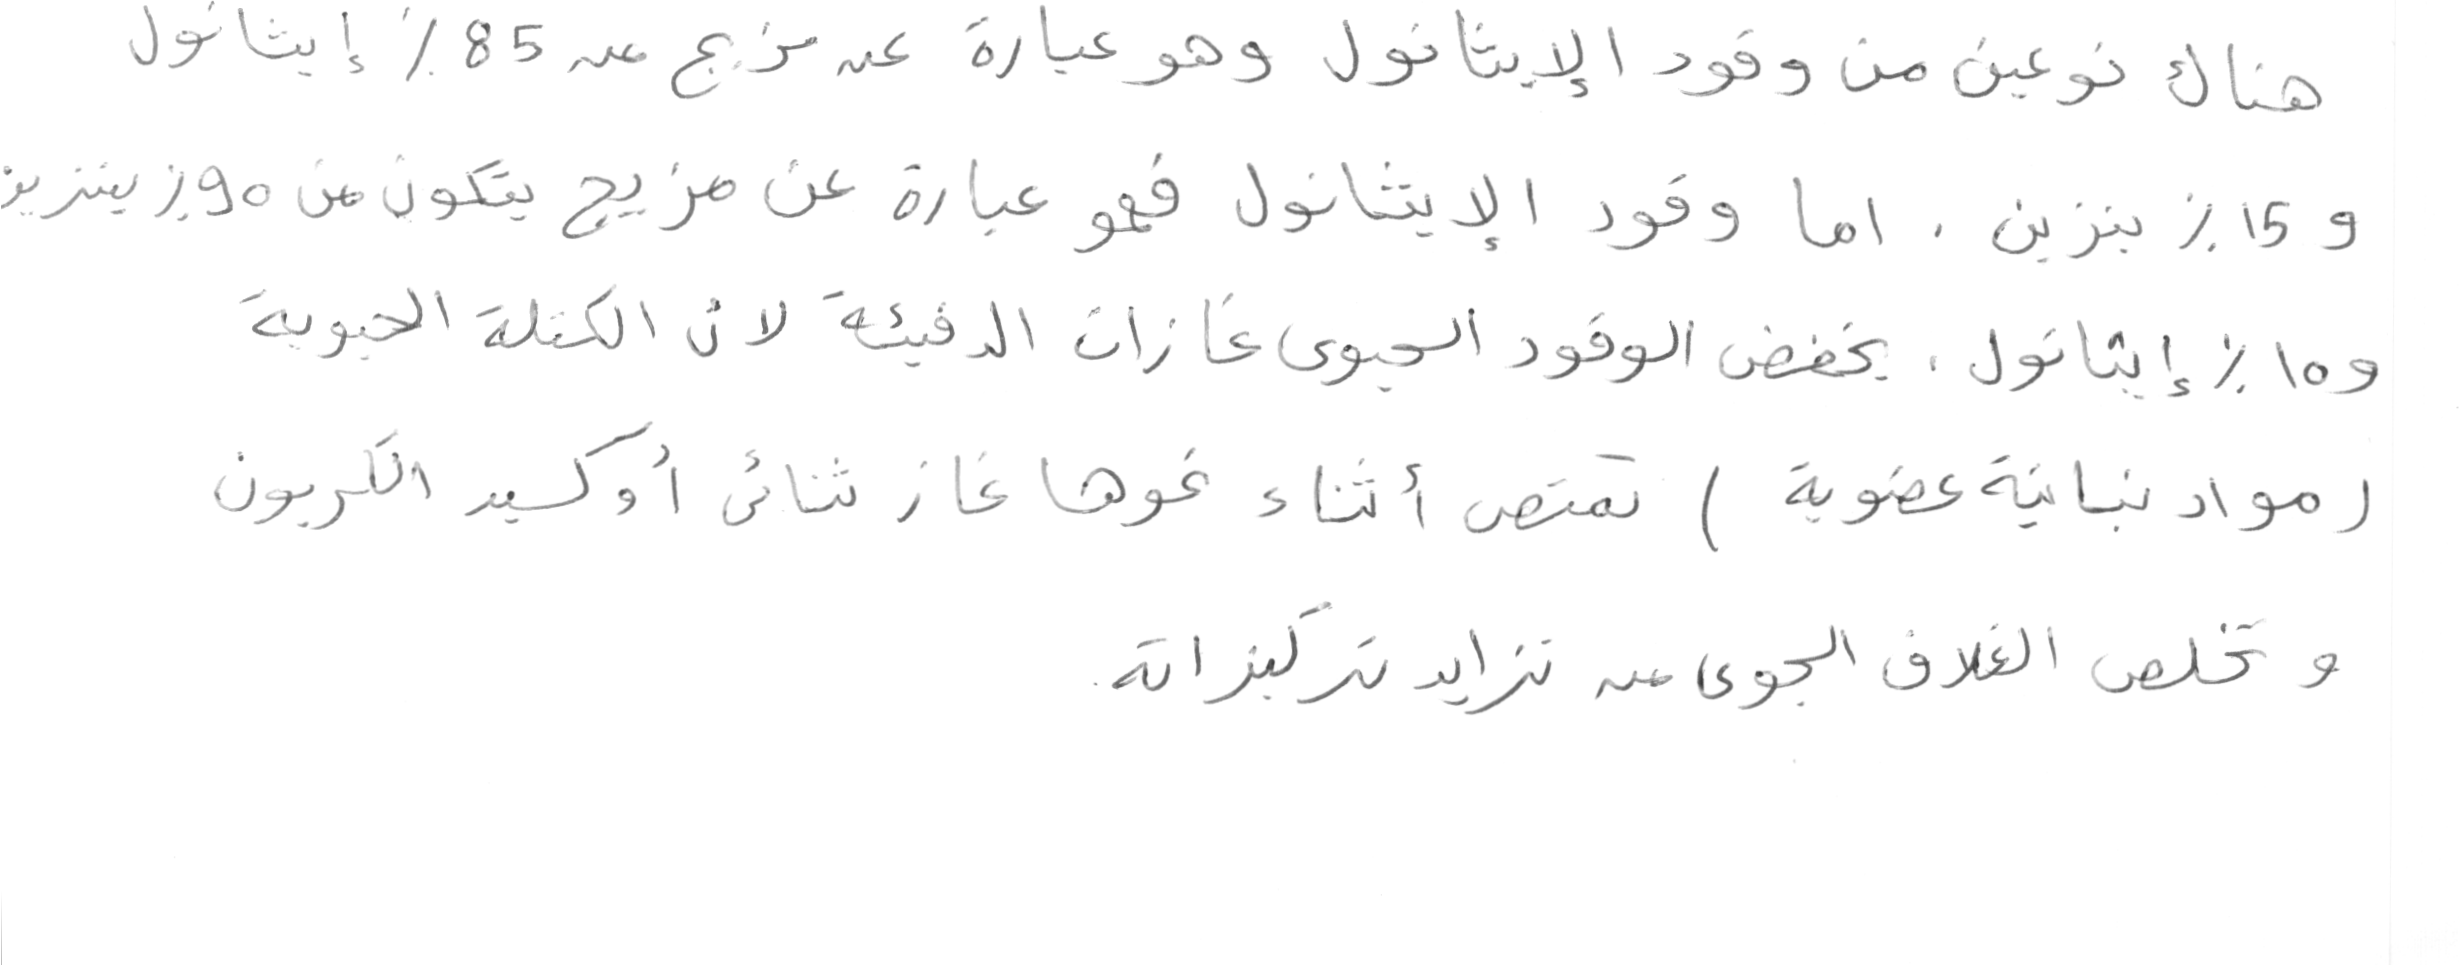 هناك نوعين من وقود الإيثانول وهو عبارة عن مزيج من 85٪ إيثانول
و 15٪ بنزين . اما وقود الإيثانول فهو عبارة عن مزيج يتكون من 90٪ بنزين
و10٪ إيثانول . يخفض الوقود الحيوى غازات الدفيئة لان الكتلة الحيوية
(مواد نباتية عضوية ) تمتص أثناء نموها غاز ثنائى أوكسيد الكربون
و تخلص الغلاف الجوى من تزايد تركيزاته .